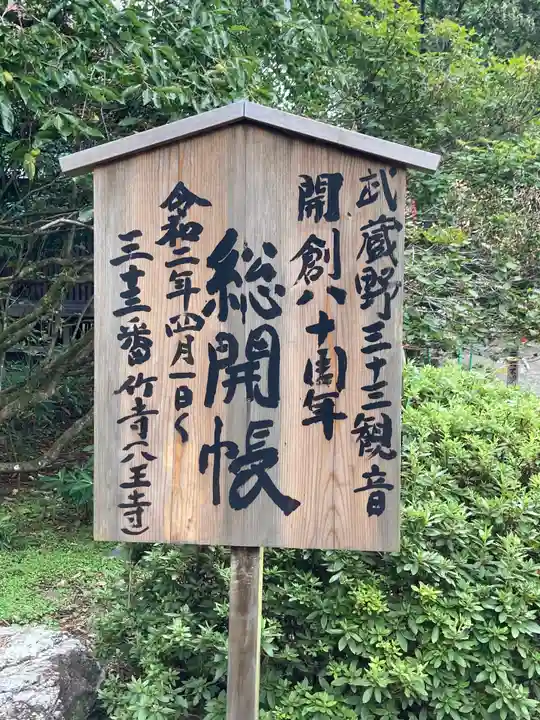 武蔵野三十三観音
開創八十周年
総開帳
令和二年四月一日〜
三十三番 竹寺(八王寺)